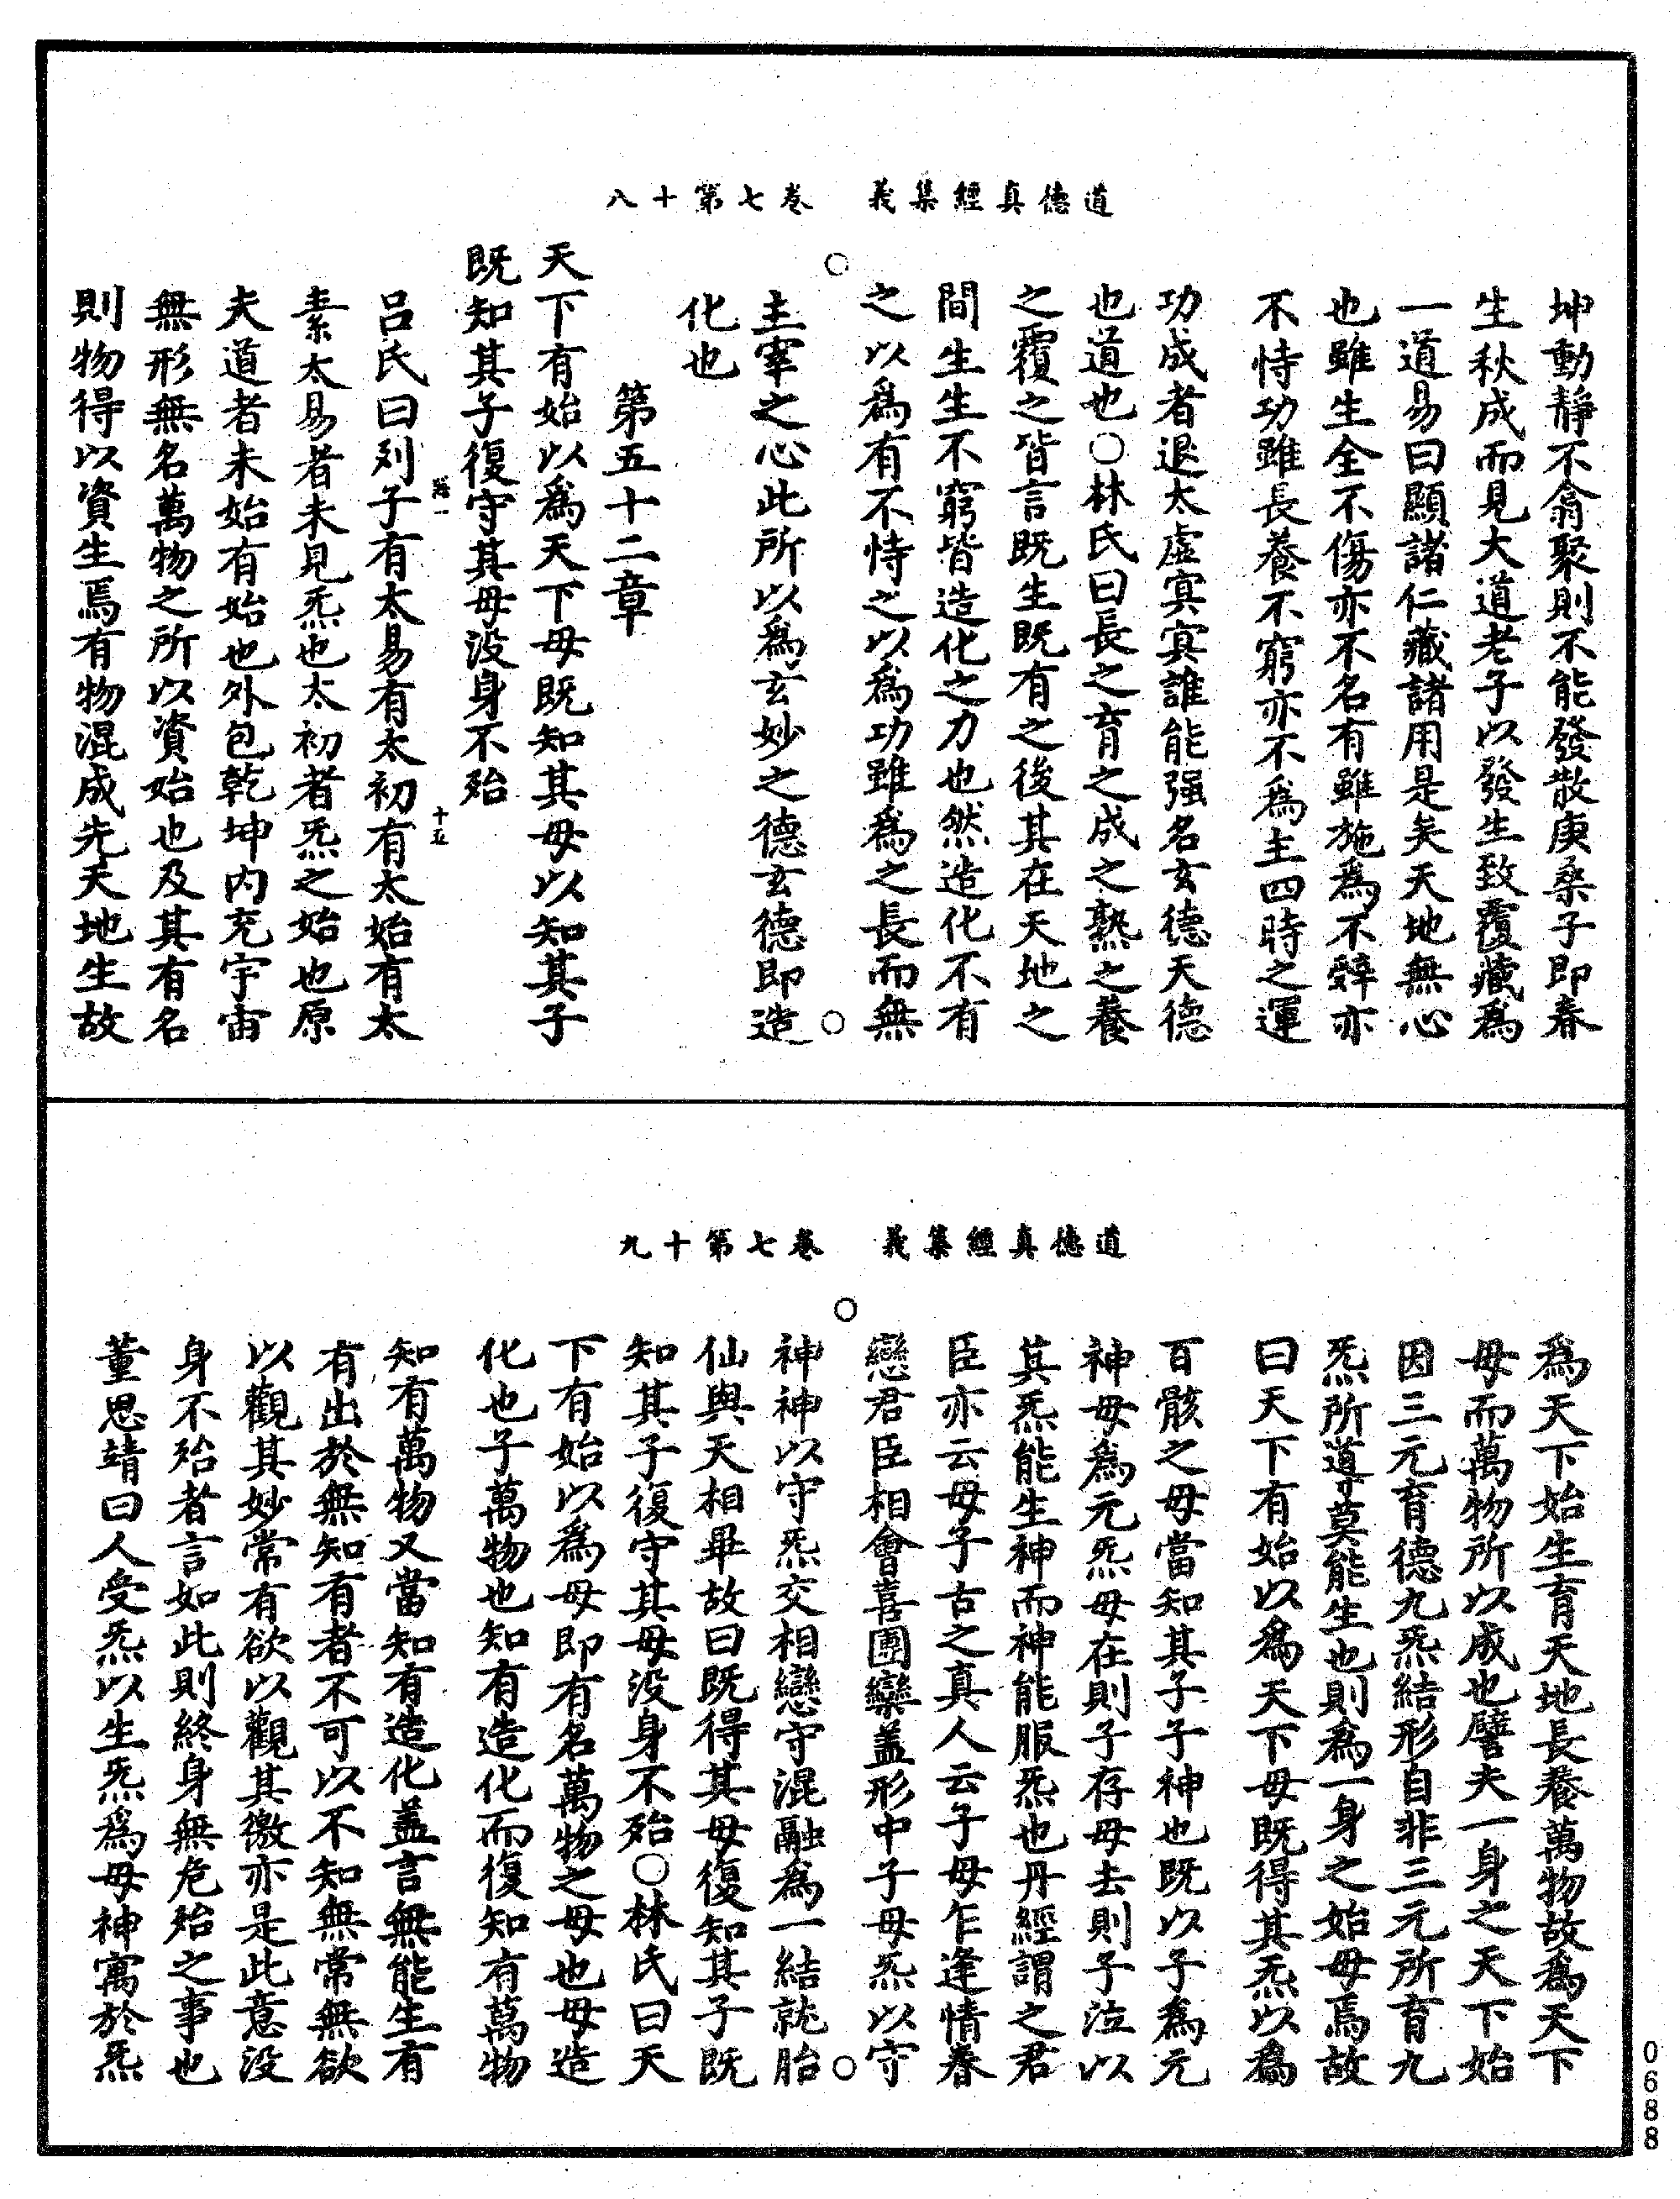 道德真經集義　卷七第十八
坤動靜不翕聚則不能發散庚桑子即春
生秋成而見大道老子以發生致覆藏爲
一道易曰顯諸仁藏諸用是矣天地無心
也雖生全不傷亦不名有雖施爲不辭亦
不恃功雖長養不窮亦不爲主四時之運
功成者退太虛寞寞誰能强名玄德天德
也道也○林氏曰長之育之成之熟之養
之覆之皆言既生既有之後其在天地之
間生生不窮皆造化之力也然造化不有
之以爲有不恃之以爲功雖爲之長而無
主宰之心此所以爲玄妙之德玄德即造
化也
第五十二章
天下有始以爲天下母既知其母以知其子
既知其子復守其母没身不殆
呂氏曰列子有太易有太初有太始有太
素太易者未見炁也太初者炁之始也原
夫道者未始有始也外包乾坤內充宇宙
無形無名萬物之所以資始也及其有名
則物得以資生焉有物混成先天地生故
十五
道德真經集義　卷七第十九
爲天下始生育天地長養萬物故爲天下
母而萬物所以成也譬夫一身之天下始
因三元育德九炁結形自非三元所育九
炁所導莫能生也則爲一身之始母焉故
曰天下有始以爲天下母既得其炁以爲
百骸之母當知其子子神也既以子爲元
神母爲元炁母在則子存母去則子泣以
其炁能生神而神能服炁也丹經謂之君
臣亦云母子古之真人云子母乍逢情眷
戀君臣相會喜團欒盖形中子母炁以守
神神以守炁交相戀守混融爲一結就胎
仙與天相畢故曰既得其母復知其子既
知其子復守其母没身不殆○林氏曰天
下有始以爲母即有名萬物之母也母造
化也子萬物也知有造化而復知有萬物
知有萬物又當知有造化盖言無能生有
有出於無知有者不可以不知無常無欲
以觀其妙常有欲以觀其徼亦是此意没
身不殆者言如此則終身無危殆之事也
董思靖曰人受炁以生炁爲母神寓於炁
0688